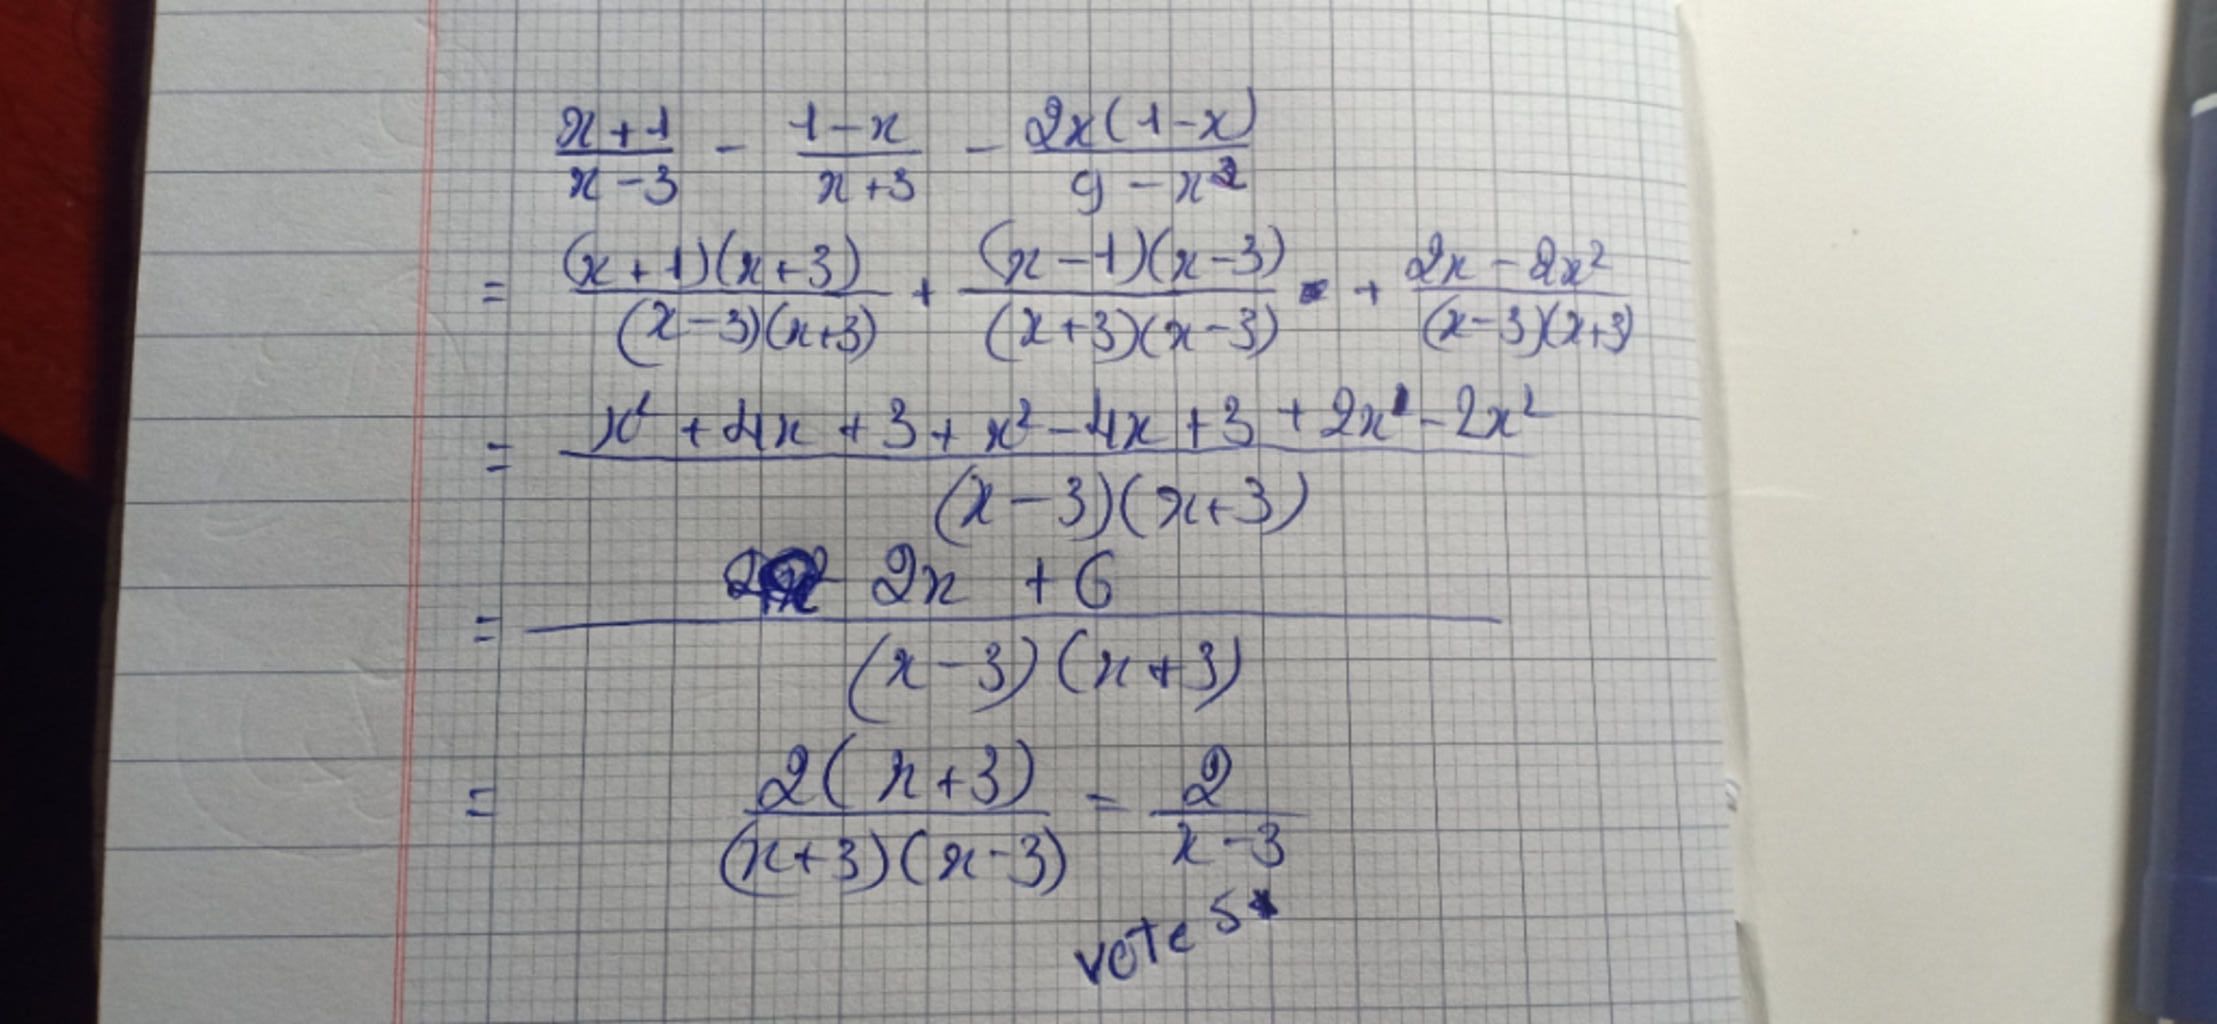 (x+1)/(x-3) - (1-x)/(x+3) - 2x(1-x)/(9-x²)
= (x+1)(x+3)/(x-3)(x+3) + (x-1)(x-3)/(x+3)(x-3) + (2x-2x²)/(x-3)(x+3)
= (x²+4x+3+x²-4x+3+2x-2x²)/(x-3)(x+3)
= (2x+6)/(x-3)(x+3)
= 2(x+3)/(x+3)(x-3) = 2/(x-3)
vote 5*